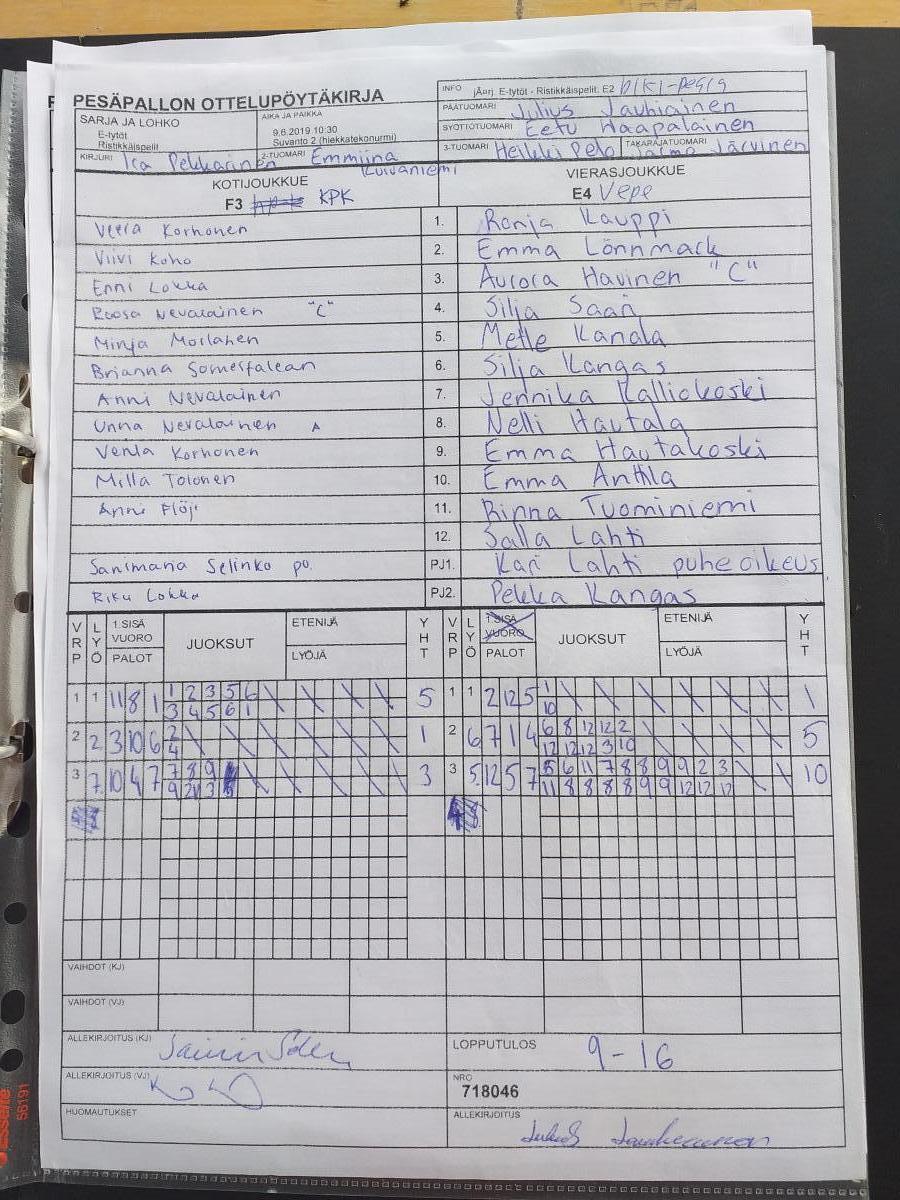 PESÄPALLON OTTELUPÖYTÄKIRJA
INFO jÄorj. E-tytöt - Ristikkäispelit. E2
PÄÄTUOMARI Julius Jauhiainen
SARJA JA LOHKO
E-tytöt
Ristikkäispelit
AIKA JA PAIKKA
9.6.2019 10:30
Suvanto 2 (hiekkatekonurmi)
SYÖTTÖTUOMARI Eetu Haapalainen
KIRJURI Ira Pekkarinen
2-TUOMARI Emmiina Kuivaniemi
3-TUOMARI Heikki Pelo
TAKARAJATUOMARI Jarmo Järvinen
KOTIJOUKKUE
F3 KPK
VIERASJOUKKUE
E4 Vepe
Veera Korhonen 1. Ronja Kauppi
Viivi Koho 2. Emma Lönnmark
Enni Lokka 3. Aurora Havinen "C"
Roosa Nevalainen "C" 4. Silja Saari
Minja Moilanen 5. Mette Kanala
Brianna 6. Silja Kangas
Anni Nevalainen 7. Jennika Kalliokoski
Unna Nevalainen A 8. Nelli Hautala
Venla Korhonen 9. Emma Hautakoski
Milla Tolonen 10. Emma Anttila
Anni Flöjt 11. Rinna Tuominiemi
12. Salla Lahti
Selinko po. PJ1. Kari Lahti puheoikeus
Riku Lokka PJ2. Pekka Kangas
VRP LYÖ 1.SISÄ VUORO PALOT JUOKSUT ETENIJÄ LYÖJÄ YHT VRP LYÖ 1.SISÄ VUORO PALOT JUOKSUT ETENIJÄ LYÖJÄ YHT
1 1 11 8 1 1 2 3 5 6 5 1 1 2 12 5 1 1
3 4 5 6 1 10
2 2 3 10 6 2 1 2 6 7 1 4 6 8 12 12 2 5
4 12 12 12 3 10
3 7 10 4 7 7 8 9 3 3 5 12 5 7 5 6 11 7 8 8 9 9 2 3 10
9 3 11 8 8 8 8 9 9 12 12 12
VAIHDOT (KJ)
VAIHDOT (VJ)
ALLEKIRJOITUS (KJ)
LOPPUTULOS 9-16
ALLEKIRJOITUS (VJ)
NRO
718046
HUOMAUTUKSET
ALLEKIRJOITUS
56191